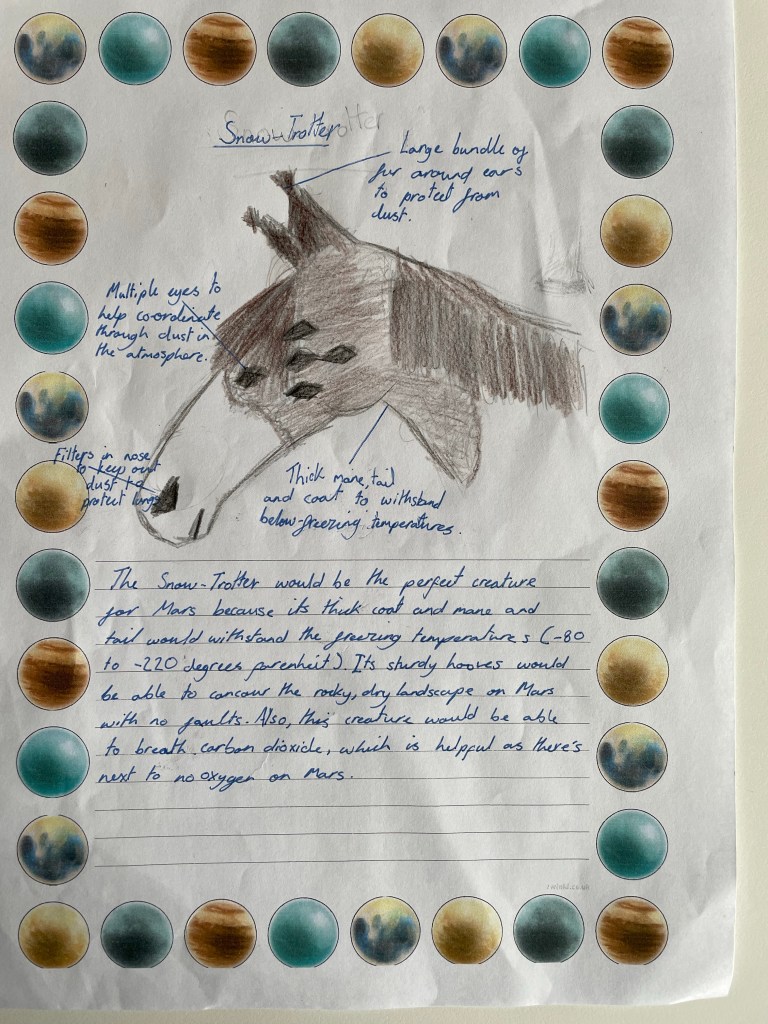 Snow-Trotter
Large bundle of
fur around ears
to protect from
dust.
Multiple eyes to
help co-ordenate
through dust in
the atmosphere.
Filters in nose
to keep out
dust to
protect lungs
Thick mane, tail
and coat to withstand
below-freezing temperatures.
The Snow-Trotter would be the perfect creature
for Mars because its thick coat and mane and
tail would withstand the freezing temperatures (-80
to -220 degrees farenheit). Its sturdy hooves would
be able to concour the rocky, dry landscape on Mars
with no faults. Also, this creature would be able
to breath carbon dioxide, which is helpful as there's
next to no oxygen on Mars.